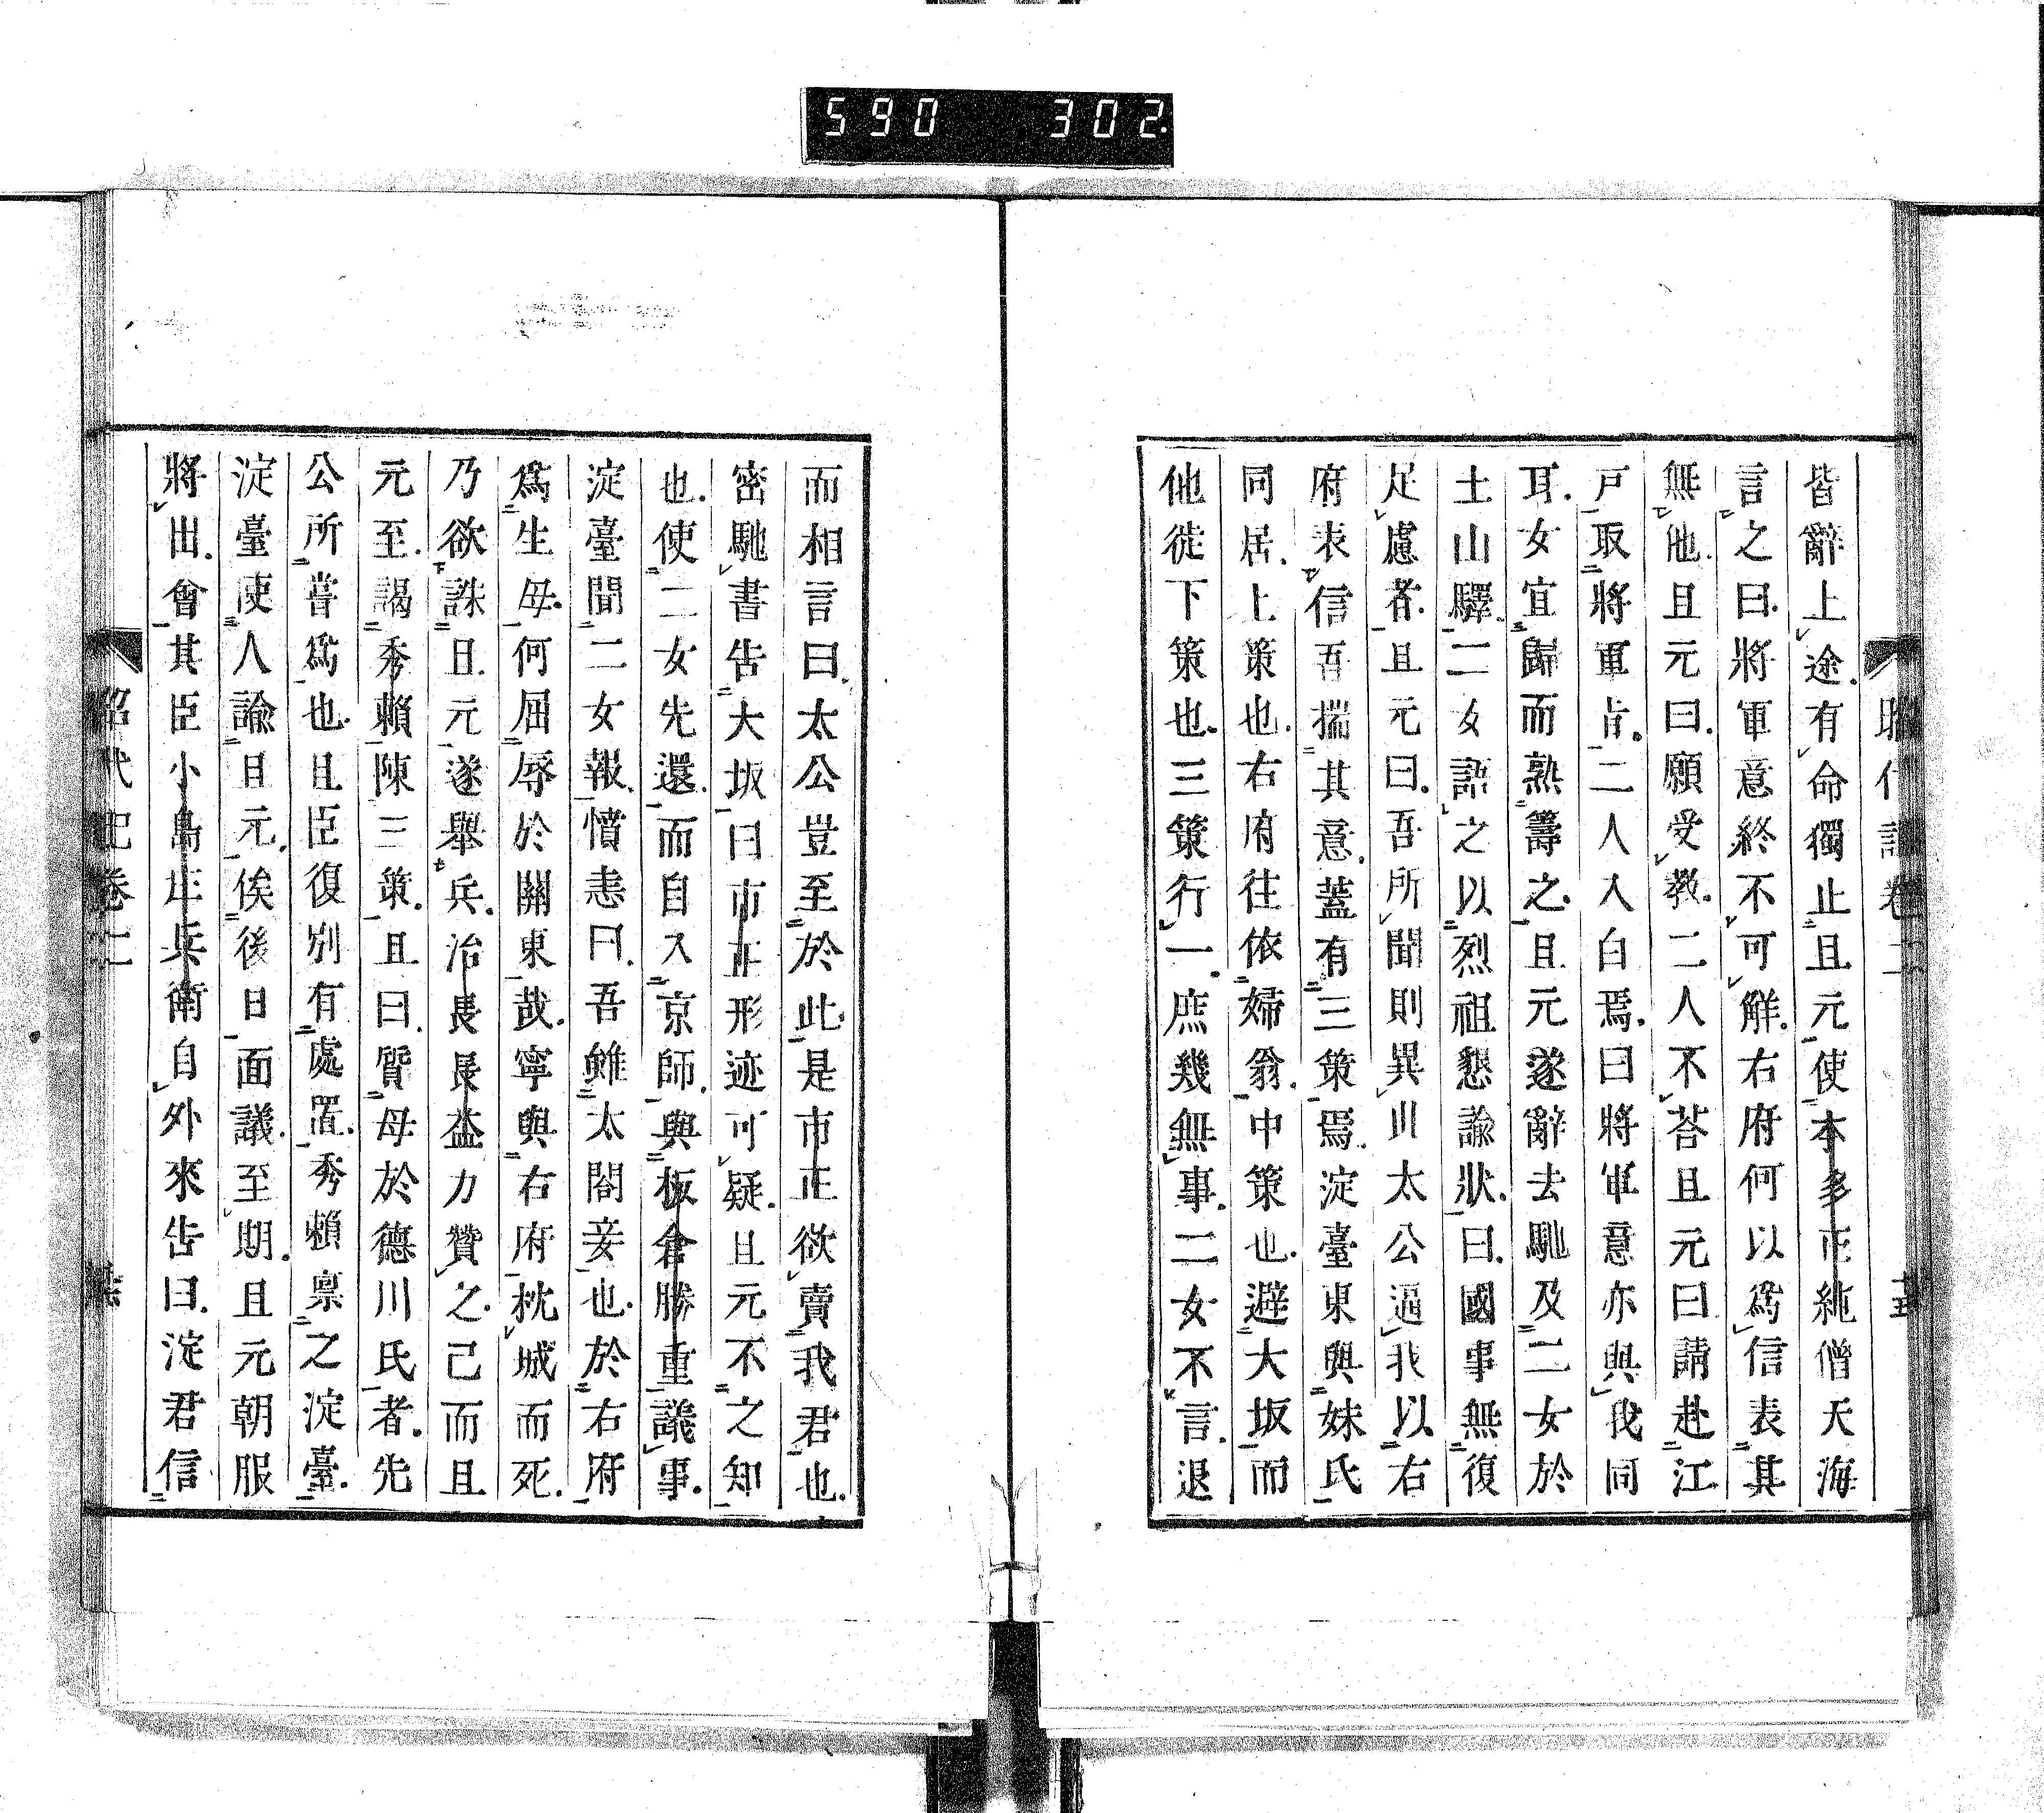 590 302.
昭代記卷二 十五
皆辭上途.有命獨止且元使本多正純僧天海
言之曰.將軍意終不可解.右府何以爲信表其
無他.且元曰.願受教.二人不荅且元曰請赴江
戸取將軍旨.二人入白焉.曰將軍意亦與我同
耳.女宜歸而熟籌之.且元遂辭去馳及二女於
土山驛.二女語之以烈祖懇諭狀.曰.國事無復
足慮者.且元曰.吾所聞則異川太公逼我以右
府表信吾揣其意.蓋有三策焉.淀臺東與妹氏
同居.上策也.右府往依婦翁.中策也.避大坂而
他徙下策也.三策行一.庶幾無事.二女不言.退
而相言曰.太公豈至於此.是市正欲賣我君也.
密馳書告大坂曰市正形迹可疑.且元不之知
也.使二女先還.而自入京師.與板倉勝重議事.
淀臺聞二女報.憤恚曰.吾雖太閤妾也.於右府
爲生母.何屈辱於關東哉.寧與右府枕城而死.
乃欲誅且元遂舉兵.治長長益力贊之.已而且
元至.謁秀賴陳三策.且曰.質母於德川氏者.先
公所嘗爲也.且臣復別有處置.秀賴稟之淀臺.
淀臺使人諭且元.俟後日面議.至期.且元朝服
將出.會其臣小島庄兵衛自外來告曰.淀君信
昭代記卷二